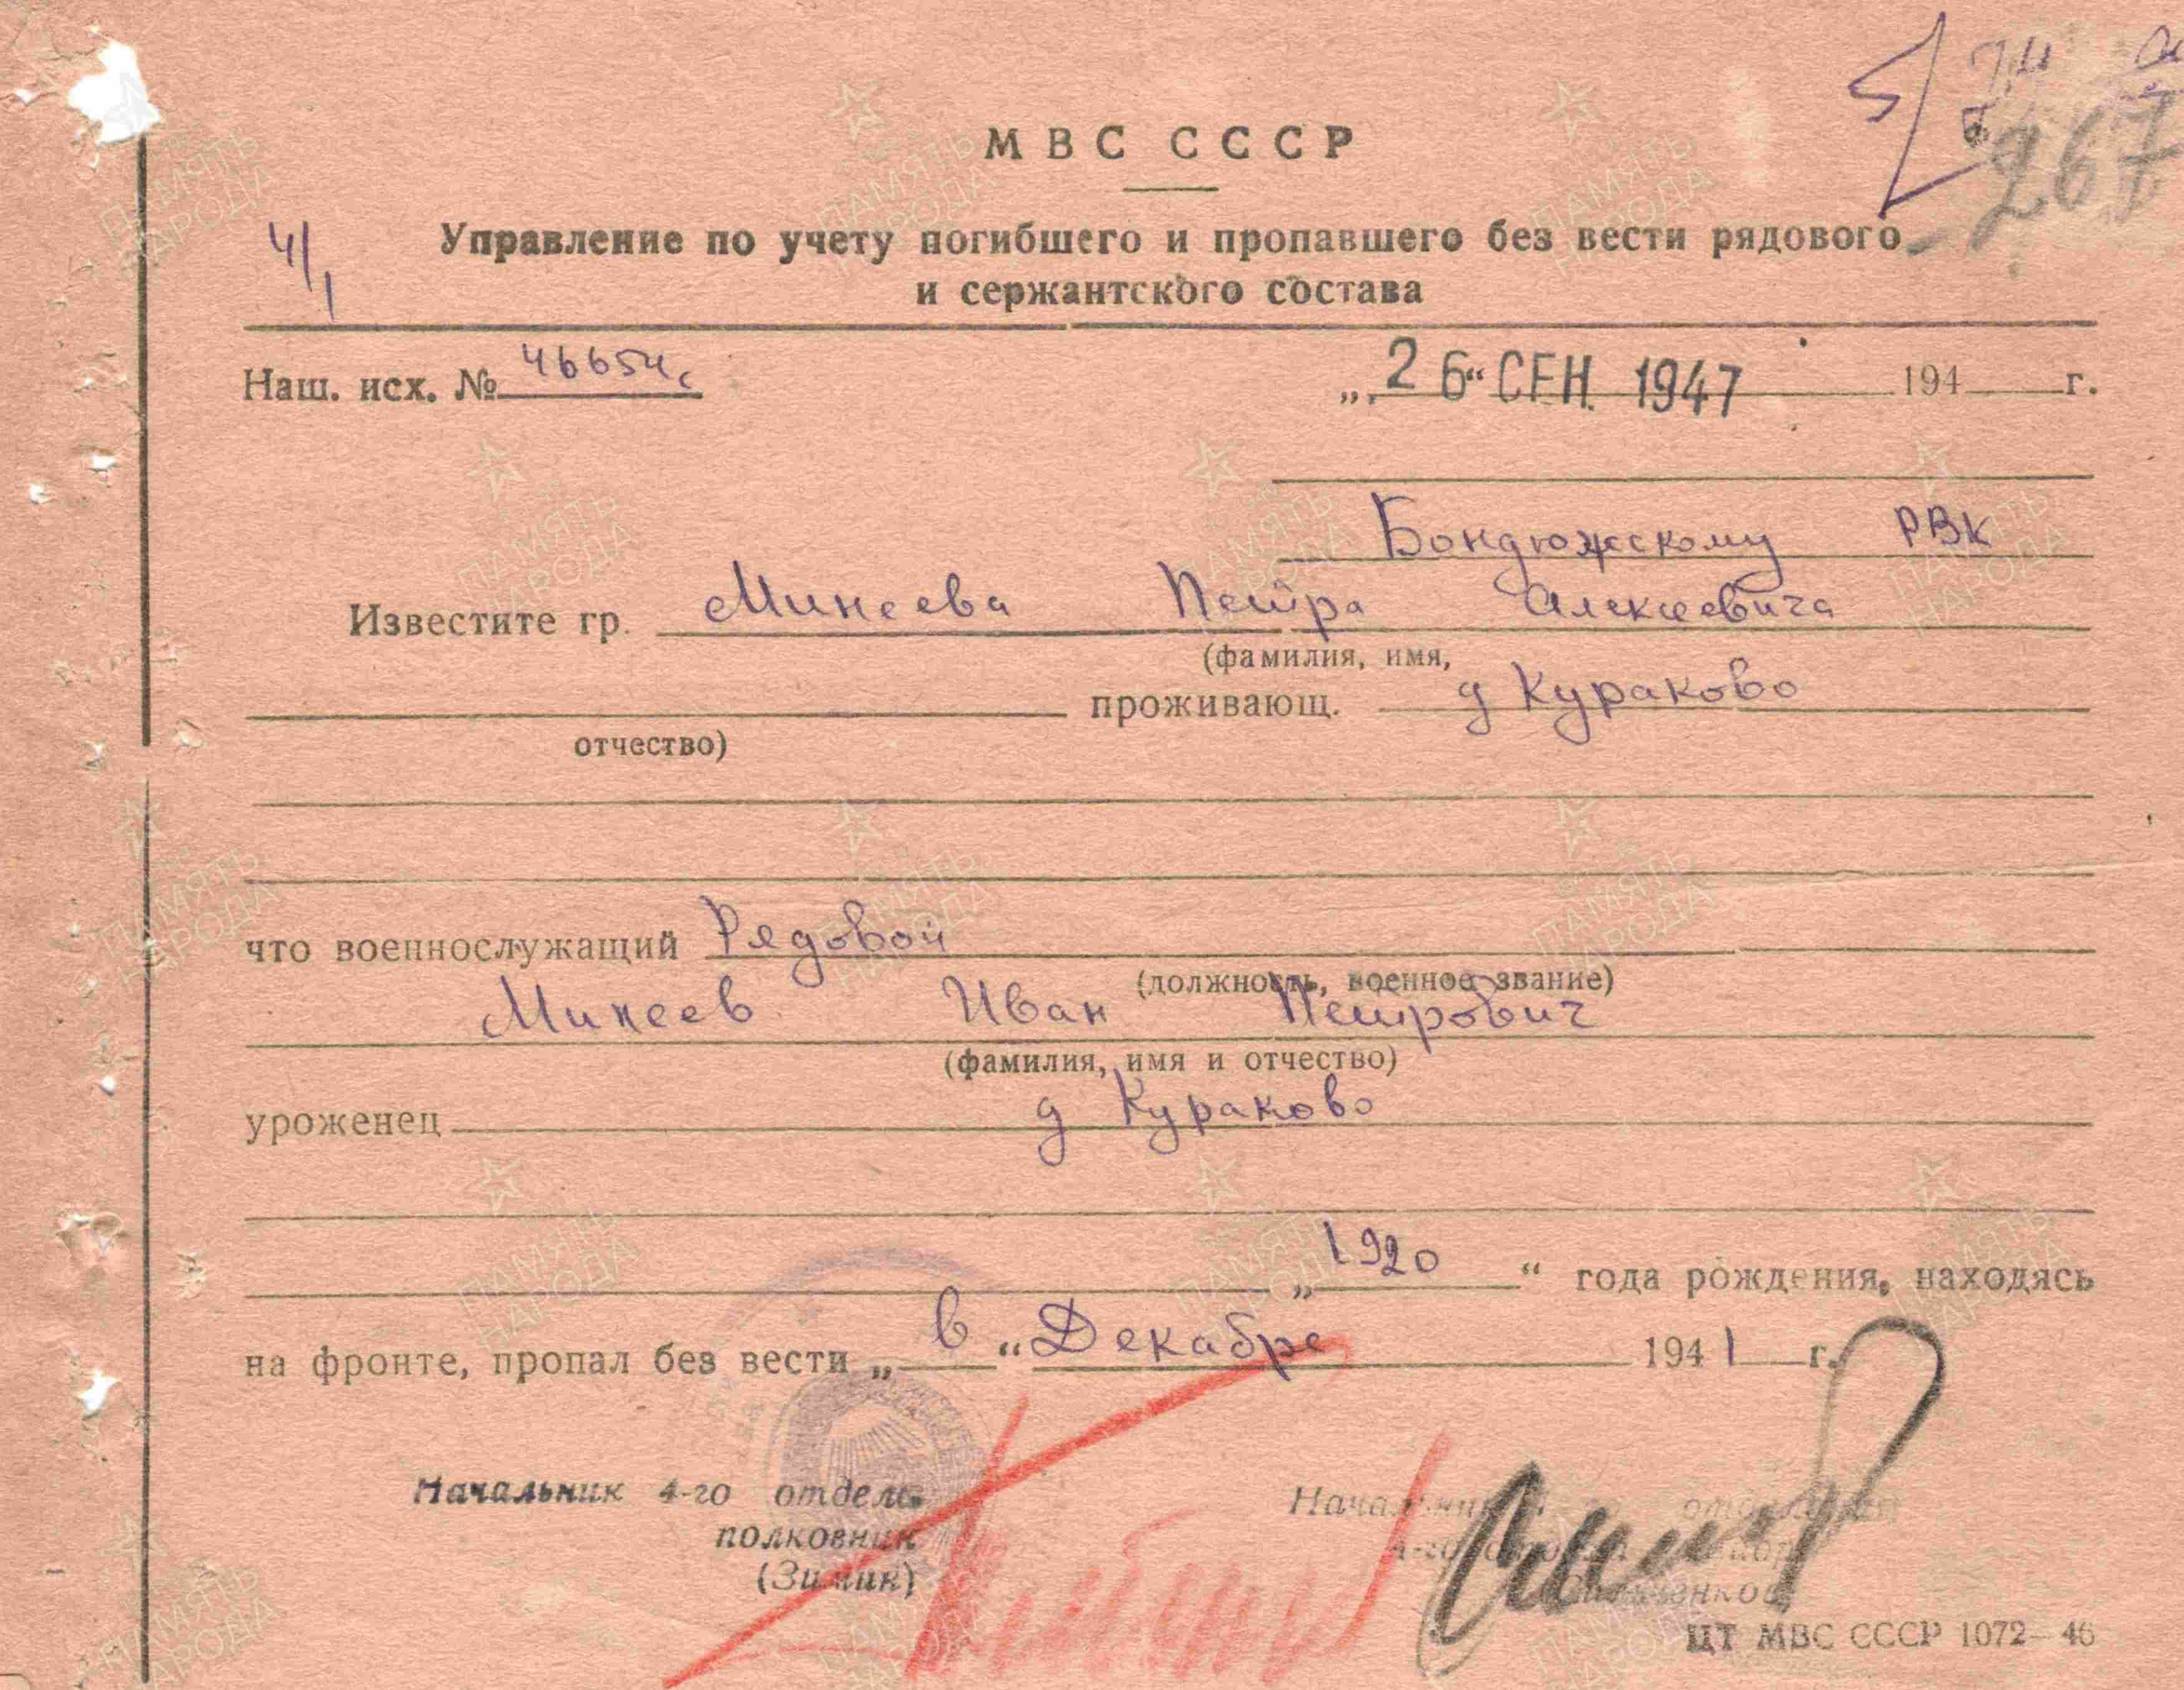 267
МВС СССР
4/1
Управление по учету погибшего и пропавшего без вести рядового
и сержантского состава
Наш. исх. № 46654с „26“ СЕН. 1947 194 г.
Бондюжскому РВК
Известите гр. Минеева Петра Алексеевича
(фамилия, имя,
проживающ. д Кураково
отчество)
что военнослужащий Рядовой
(должность, военное звание)
Минеев Иван Петрович
(фамилия, имя и отчество)
уроженец д Кураково
„1920“ года рождения, находясь
на фронте, пропал без вести „в“ Декабре 1941 г.
Начальник 4-го отдела
полковник
(Зимин)
Начальник отделения
4-го отдела
ЦТ МВС СССР 1072—46
ПАМЯТЬ
НАРОДА